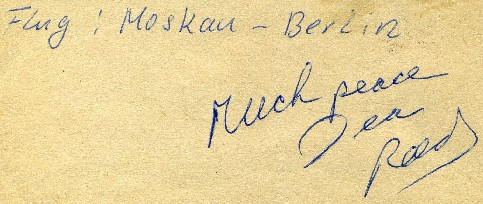 Flug : Moskau - Berlin
Much peace
Dean
Reed